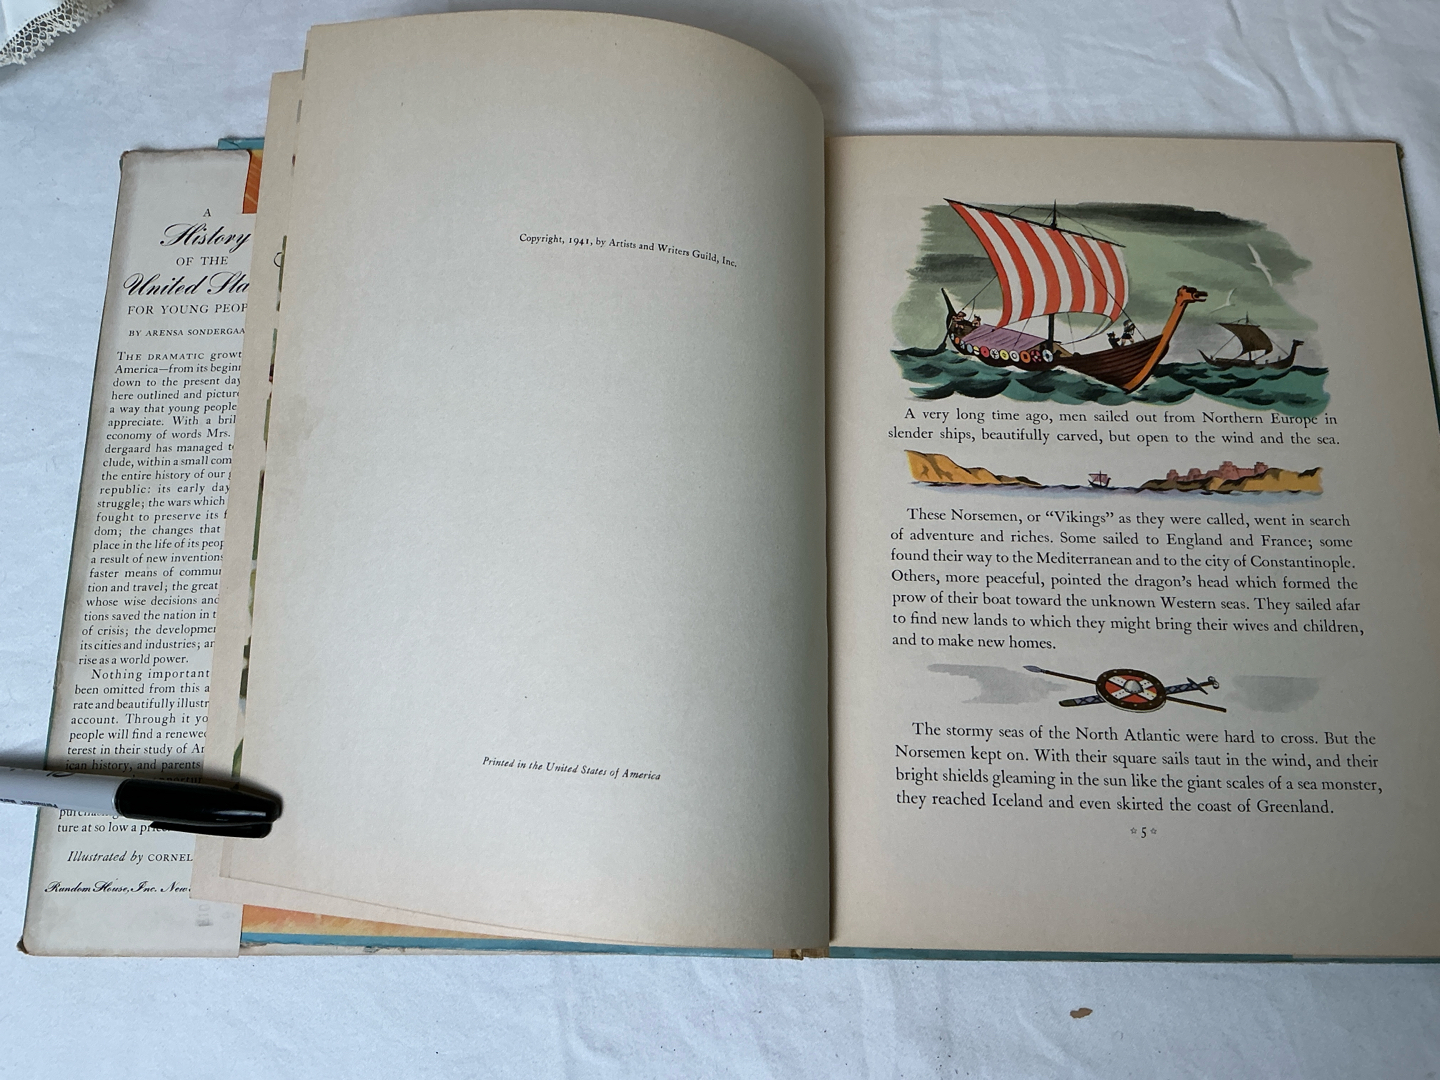 A
History
OF THE
United Sta
FOR YOUNG PEOP
BY ARENSA SONDERGAA
THE DRAMATIC growt
America—from its begin
down to the present day
here outlined and picture
a way that young people
appreciate. With a bril
economy of words Mrs.
dergaard has managed t
clude, within a small com
the entire history of our
republic: its early day
struggle; the wars which
fought to preserve its f
dom; the changes that
place in the life of its peop
a result of new inventions
faster means of commun
tion and travel; the great
whose wise decisions and
tions saved the nation in t
of crisis; the developmen
its cities and industries; an
rise as a world power.
Nothing important
been omitted from this a
rate and beautifully illustr
account. Through it yo
people will find a renewed
terest in their study of Am
ican history, and parents
ture at so low a price.
Illustrated by CORNEL
Random House, Inc. New
Copyright, 1941, by Artists and Writers Guild, Inc.
Printed in the United States of America
A very long time ago, men sailed out from Northern Europe in
slender ships, beautifully carved, but open to the wind and the sea.
These Norsemen, or “Vikings” as they were called, went in search
of adventure and riches. Some sailed to England and France; some
found their way to the Mediterranean and to the city of Constantinople.
Others, more peaceful, pointed the dragon’s head which formed the
prow of their boat toward the unknown Western seas. They sailed afar
to find new lands to which they might bring their wives and children,
and to make new homes.
The stormy seas of the North Atlantic were hard to cross. But the
Norsemen kept on. With their square sails taut in the wind, and their
bright shields gleaming in the sun like the giant scales of a sea monster,
they reached Iceland and even skirted the coast of Greenland.
☆ 5 ☆